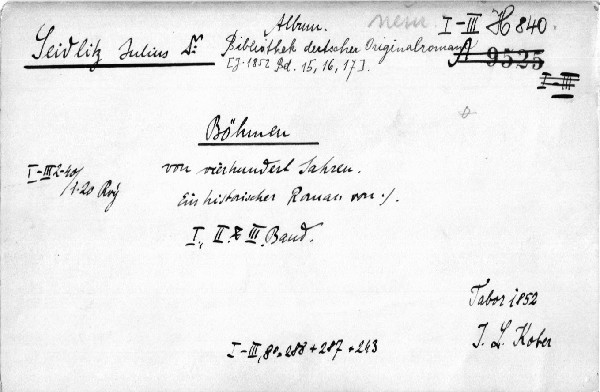 Album. I-III H 840.
Seidlitz Julius Dr. Bibliothek deutscher Originalromane A 9525
[J. 1852 Bd. 15, 16, 17]. I-III
Böhmen
von vierhundert Jahren.
I-III 2·40/1·20
Ein historischer Roman von ./.
I., II. & III. Band.
Tabor 1852
I. L. Kober
I-III, 8º, 288 + 287 + 243